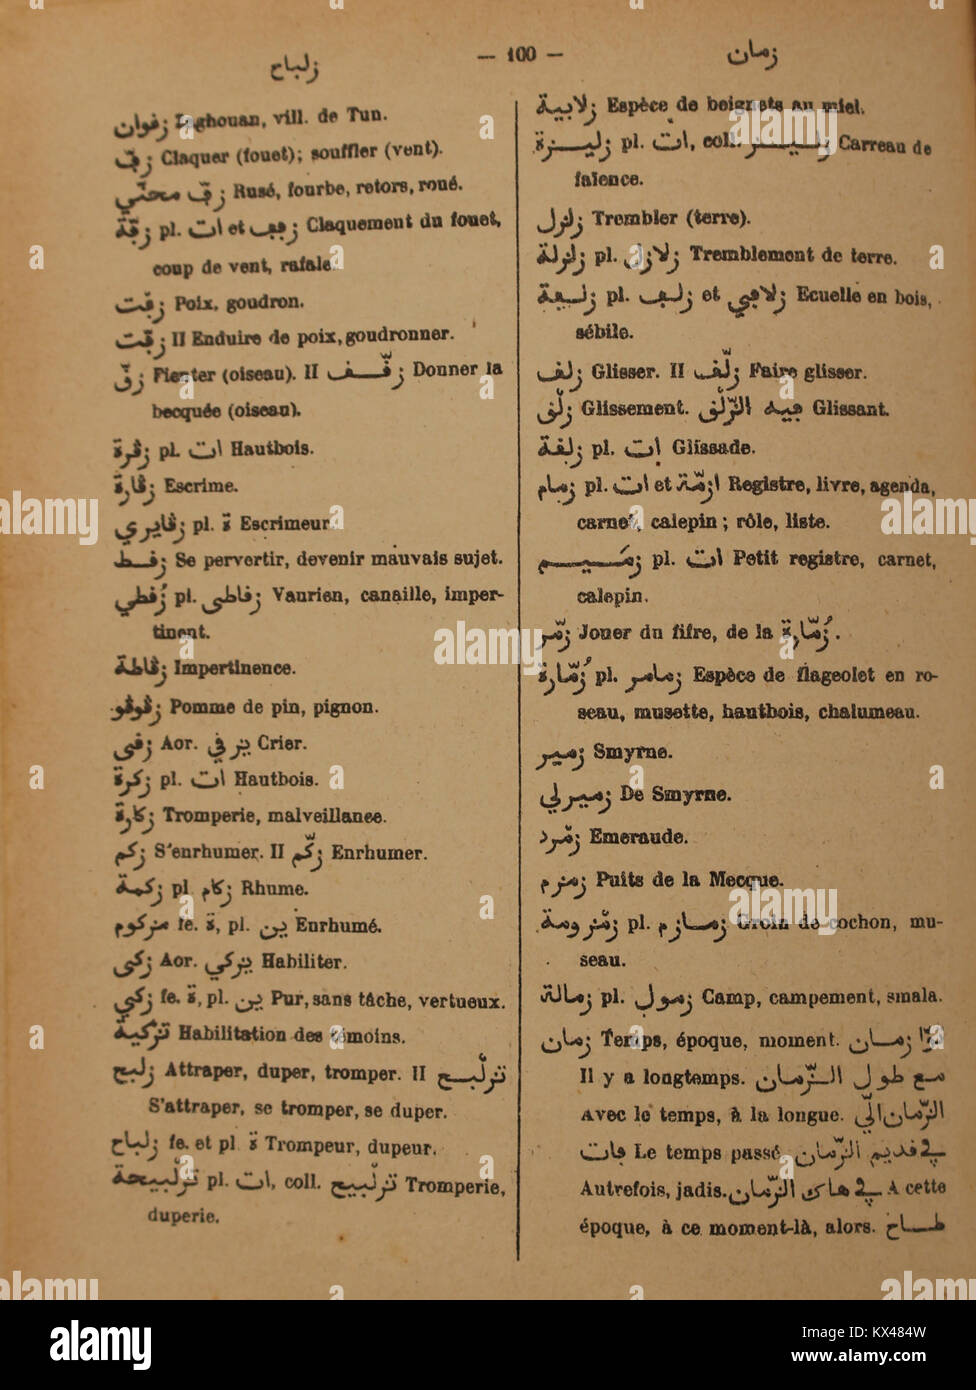 زلباح — 100 — زمان
زغوان Zaghouan, vill. de Tun.
زڢّ Claquer (fouet); souffler (vent).
زڢّ محنّي Rusé, fourbe, retors, roué.
زڢّة pl. ات et Claquement du fouet,
coup de vent, rafale.
زڢت Poix, goudron.
زڢّت II Enduire de poix, goudronner.
زڧّ Fienter (oiseau). II Donner la
becquée (oiseau).
pl. ات Hautbois.
Escrime.
pl. ة Escrimeur.
Se pervertir, devenir mauvais sujet.
pl. Vaurien, canaille, imper-
tinent.
Impertinence.
Pomme de pin, pignon.
Aor. Crier.
زكرة pl. ات Hautbois.
زكارة Tromperie, malveillance.
زكم S'enrhumer. II زكّم Enrhumer.
زكمة pl زكام Rhume.
مزكوم fe. ة, pl. ين Enrhumé.
زكى Aor. يزكي Habiliter.
زكي fe. ة, pl. ين Pur, sans tâche, vertueux.
تزكية Habilitation des témoins.
زلبح Attraper, duper, tromper. II تزلبح
S'attraper, se tromper, se duper.
زلباح fe. et pl ة Trompeur, dupeur.
تزلبيحة pl. ات, coll. تزلبيح Tromperie,
duperie.
زلابية Espèce de beignets au miel.
زليزة pl. ات, coll. زليز Carreau de
faïence.
زلزل Trembler (terre).
زلزلة pl. زلازل Tremblement de terre.
pl. et Ecuelle en bois,
sébile.
Glisser. II Faire glisser.
Glissement. Glissant.
pl. ات Glissade.
زمام pl. ات et ازمّة Registre, livre, agenda,
carnet, calepin ; rôle, liste.
زميم pl. ات Petit registre, carnet,
calepin.
زمّر Jouer du fifre, de la زمّارة.
زمّارة pl. زمامر Espèce de flageolet en ro-
seau, musette, hautbois, chalumeau.
زمير Smyrne.
زميرلي De Smyrne.
زمّرد Emeraude.
زمزم Puits de la Mecque.
زمزومة pl. زمازم Groin de cochon, mu-
seau.
زمالة pl. زمول Camp, campement, smala.
زمان Temps, époque, moment. زمان
Il y a longtemps. مع طول الزّمان
Avec le temps, à la longue. الزّمان الّي
ڢات Le temps passé. في قديم الزّمان
Autrefois, jadis. في هاك الزّمان A cette
époque, à ce moment-là, alors. طاح
alamy
KX484W
www.alamy.com